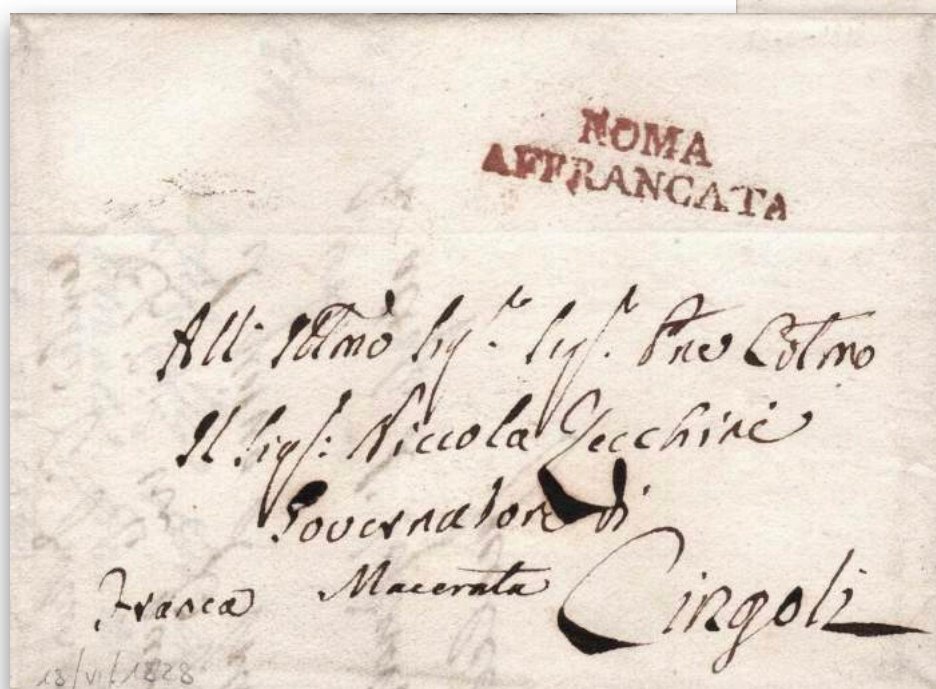 ROMA
AFFRANCATA
All' Illmo Sigr. Sigr. Pne Colmo
Il Sigr: Niccola Zecchini
Governatore di
Franca Macerata Cingoli
18/VI/1828